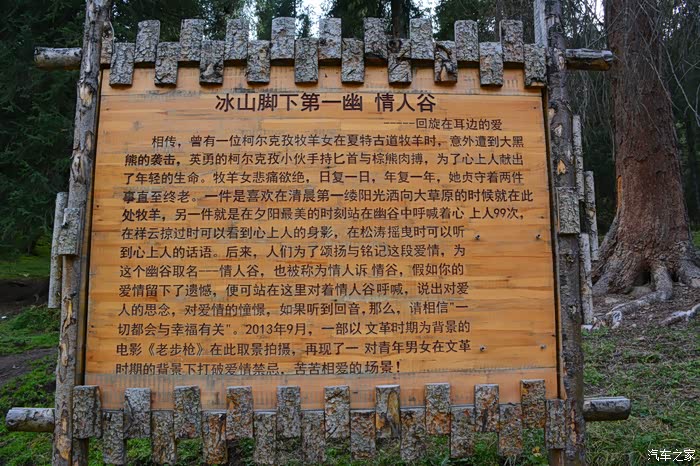 冰山脚下第一幽 情人谷
-----回旋在耳边的爱
相传，曾有一位柯尔克孜牧羊女在夏特古道牧羊时，意外遭到大黑
熊的袭击，英勇的柯尔克孜小伙手持匕首与棕熊肉搏，为了心上人献出
了年轻的生命。牧羊女悲痛欲绝，日复一日，年复一年，她贞守着两件
事直至终老。一件是喜欢在清晨第一缕阳光洒向大草原的时候就在此
处牧羊，另一件就是在夕阳最美的时刻站在幽谷中呼喊着心 上人99次，
在样云掠过时可以看到心上人的身影，在松涛摇曳时可以听
到心上人的话语。后来，人们为了颂扬与铭记这段爱情，为
这个幽谷取名---情人谷，也被称为情人诉 情谷，假如你的
爱情留下了遗憾，便可站在这里对着情人谷呼喊，说出对爱
人的思念，对爱情的憧憬，如果听到回音，那么，请相信"一
切都会与幸福有关"。2013年9月，一部以 文革时期为背景的
电影《老步枪》在此取景拍摄，再现了一 对青年男女在文革
时期的背景下打破爱情禁忌，苦苦相爱的 场景！
汽车之家